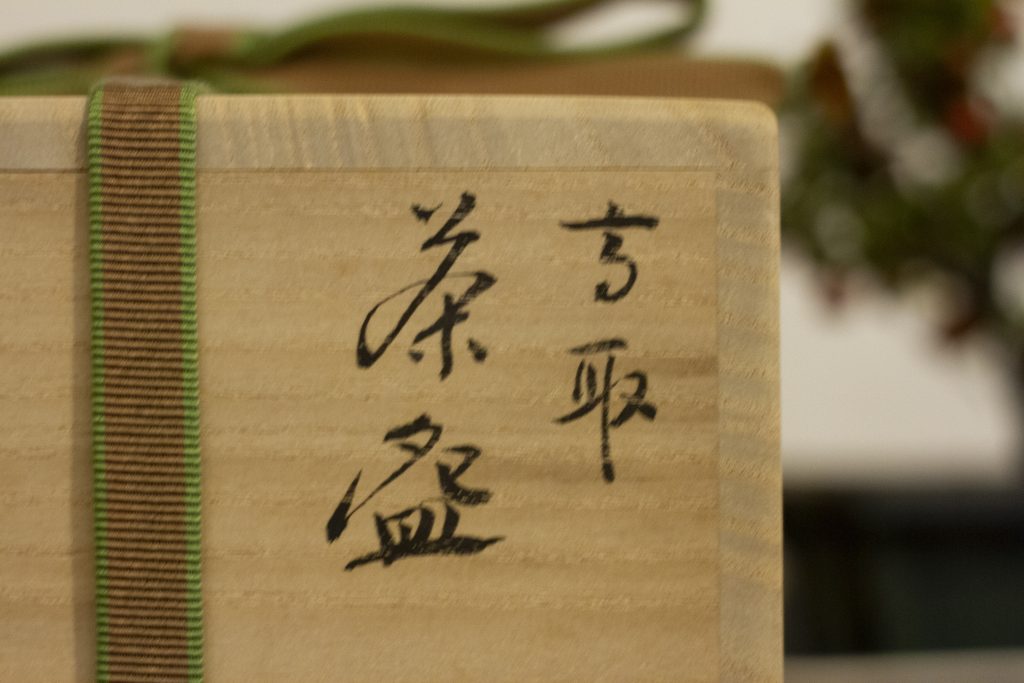 高取
茶盌